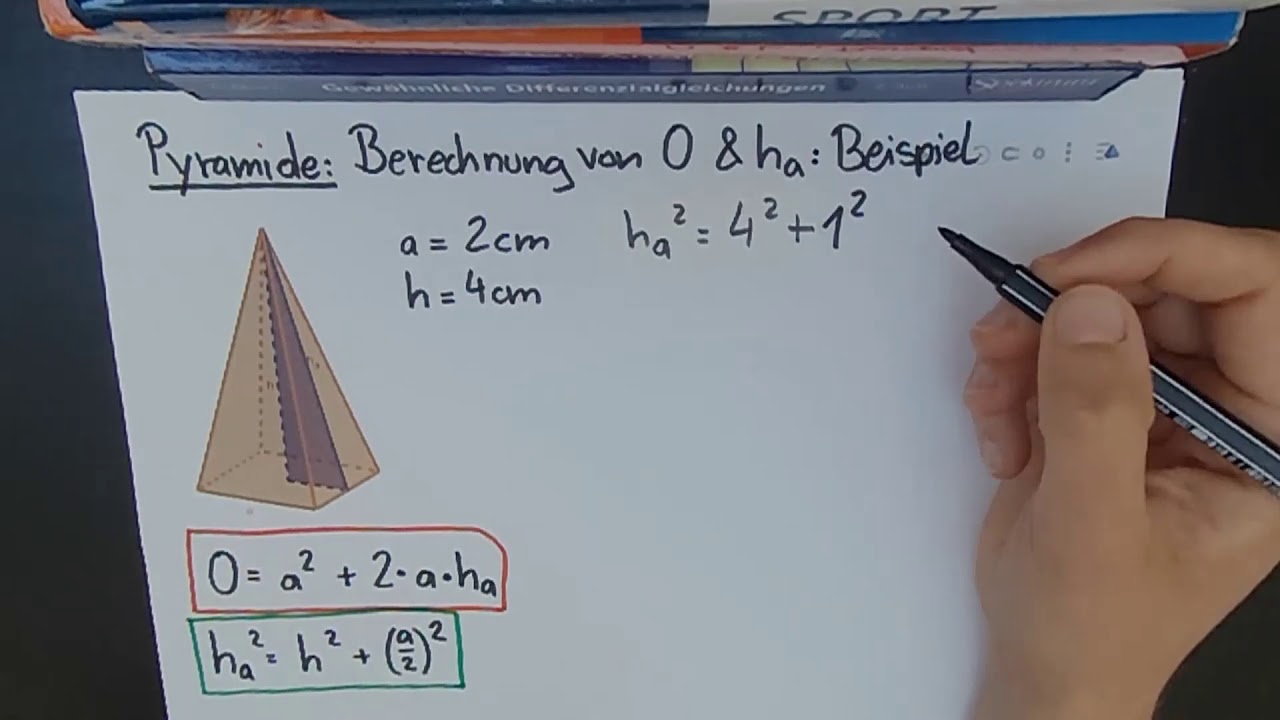 SPORT
Gewöhnliche Differenzialgleichungen
Pyramide: Berechnung von O & ha: Beispiel
a = 2cm
h = 4cm
ha² = 4² + 1²
O = a² + 2·a·ha
ha² = h² + (a/2)²